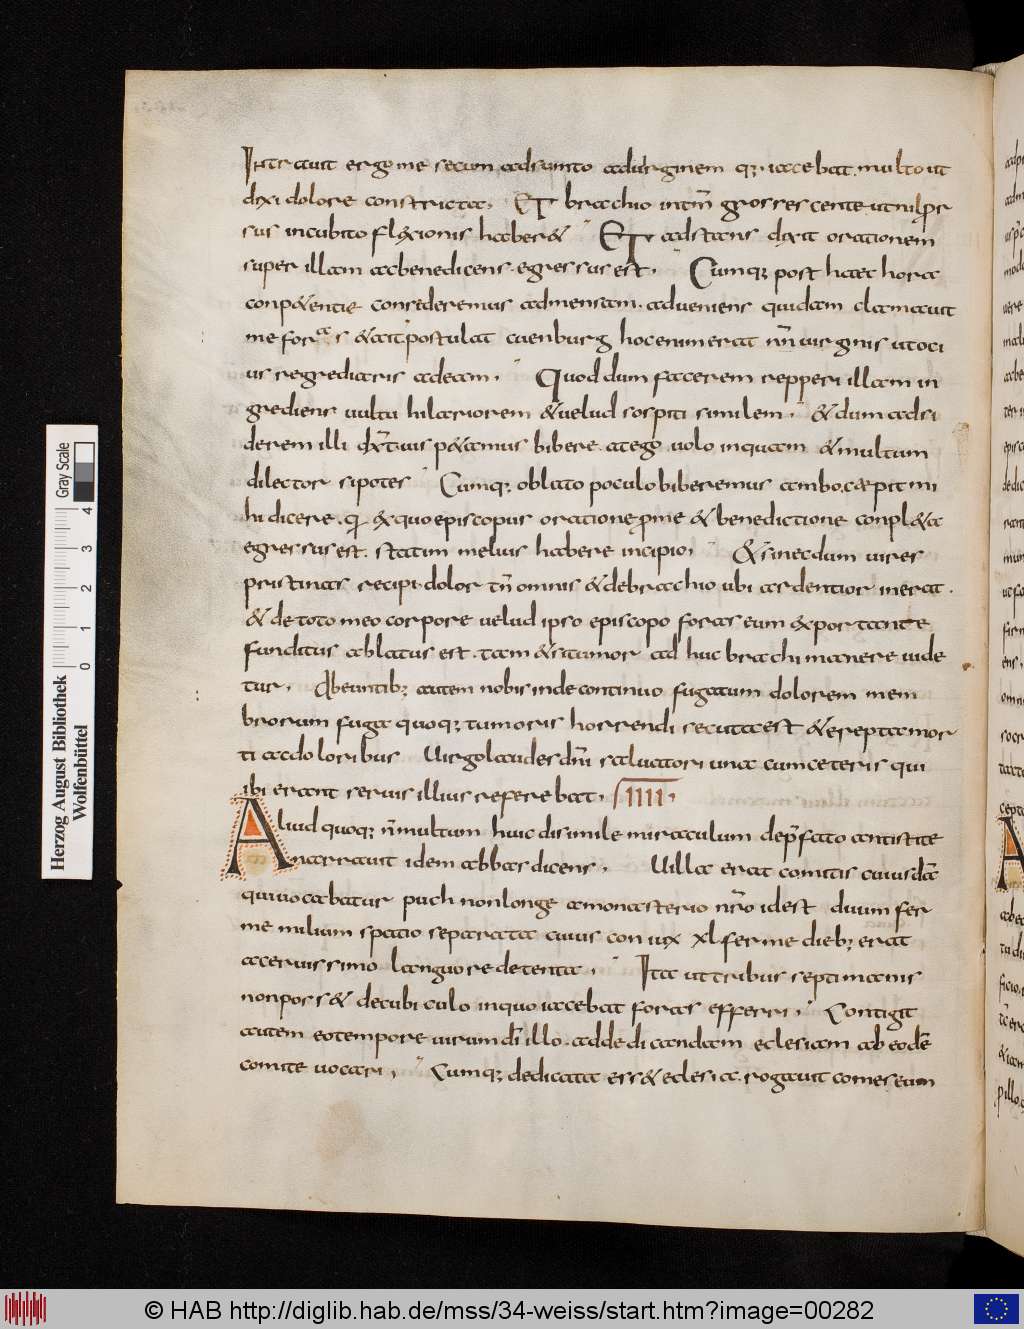 Intrauit ergo me secum adsumto aduirginem q; iacebat. multo ut
dixi dolore constricta. ET brachio intm̄ grosrescente utnihil pr
sus incubito flexionis haber& ET adstans dixit orationem
super illam acbenedicens. egressus est. Cumq; post haec hora
conp&entie consederemus admensam. adueniens quidam clamauit
me foras &ait postulat cuenburg hocenimerat nn̄ uirginis utoci
us regrediaris adeam. Quod dum facerem repperi illam in
grediens uultu hilariorem &uelud sospiti similem. & dum adsi
derem illi dx̄tuis p&amus bibere. atego uolo inquam &multum
dilector sipotes Cumq; oblato poculo biberemus ambo. caepit mi
hi dicere. q exquo episcopus oratione pme & benedictione conpl&a
egressus est. statim melius habere incipio. &sinecdum uires
pristinas recipi. dolor tn̄ omnis &debrachio ubi ardentior inerat.
& detoto meo corpore uelud ipso episcopo foras eum exportante
funditus ablatus est. tam &situmor ad huc brachi manere uide
tur. Abeuntib; autem nobis inde continuo fugatum dolorem mem
brorum fuga quoq; tumoris horrendi secuta est &erepta mor
ti acdoloribus Uirgo laudes dn̄i saluatori una cumceteris qui
ibi erant seruis illius referebat. IIII.
Aliud quoq; n̄ multum huic disimile miraculum de p̄fato antistite
narrauit idem abbas dicens. Uilla erat comitis cuiusdā
quiuocabatur puch nonlonge amonasterio nr̄o idest duum fer
me milium spatio separata cuius coniux xl ferme dieb; erat
aceruissimo languore detenta. Ita uttribus septimanis
nonposs& decubiculo inquo iacebat foras efferri. Contigit
autem eotempore uirum dī illo. addedicandam eclesiam ab eodē
comite uocari. Cumq; dedicata ess& eclesia. rogauit comes eum
Herzog August Bibliothek
Wolfenbüttel
0 1 2 3 4
Gray Scale
© HAB http://diglib.hab.de/mss/34-weiss/start.htm?image=00282